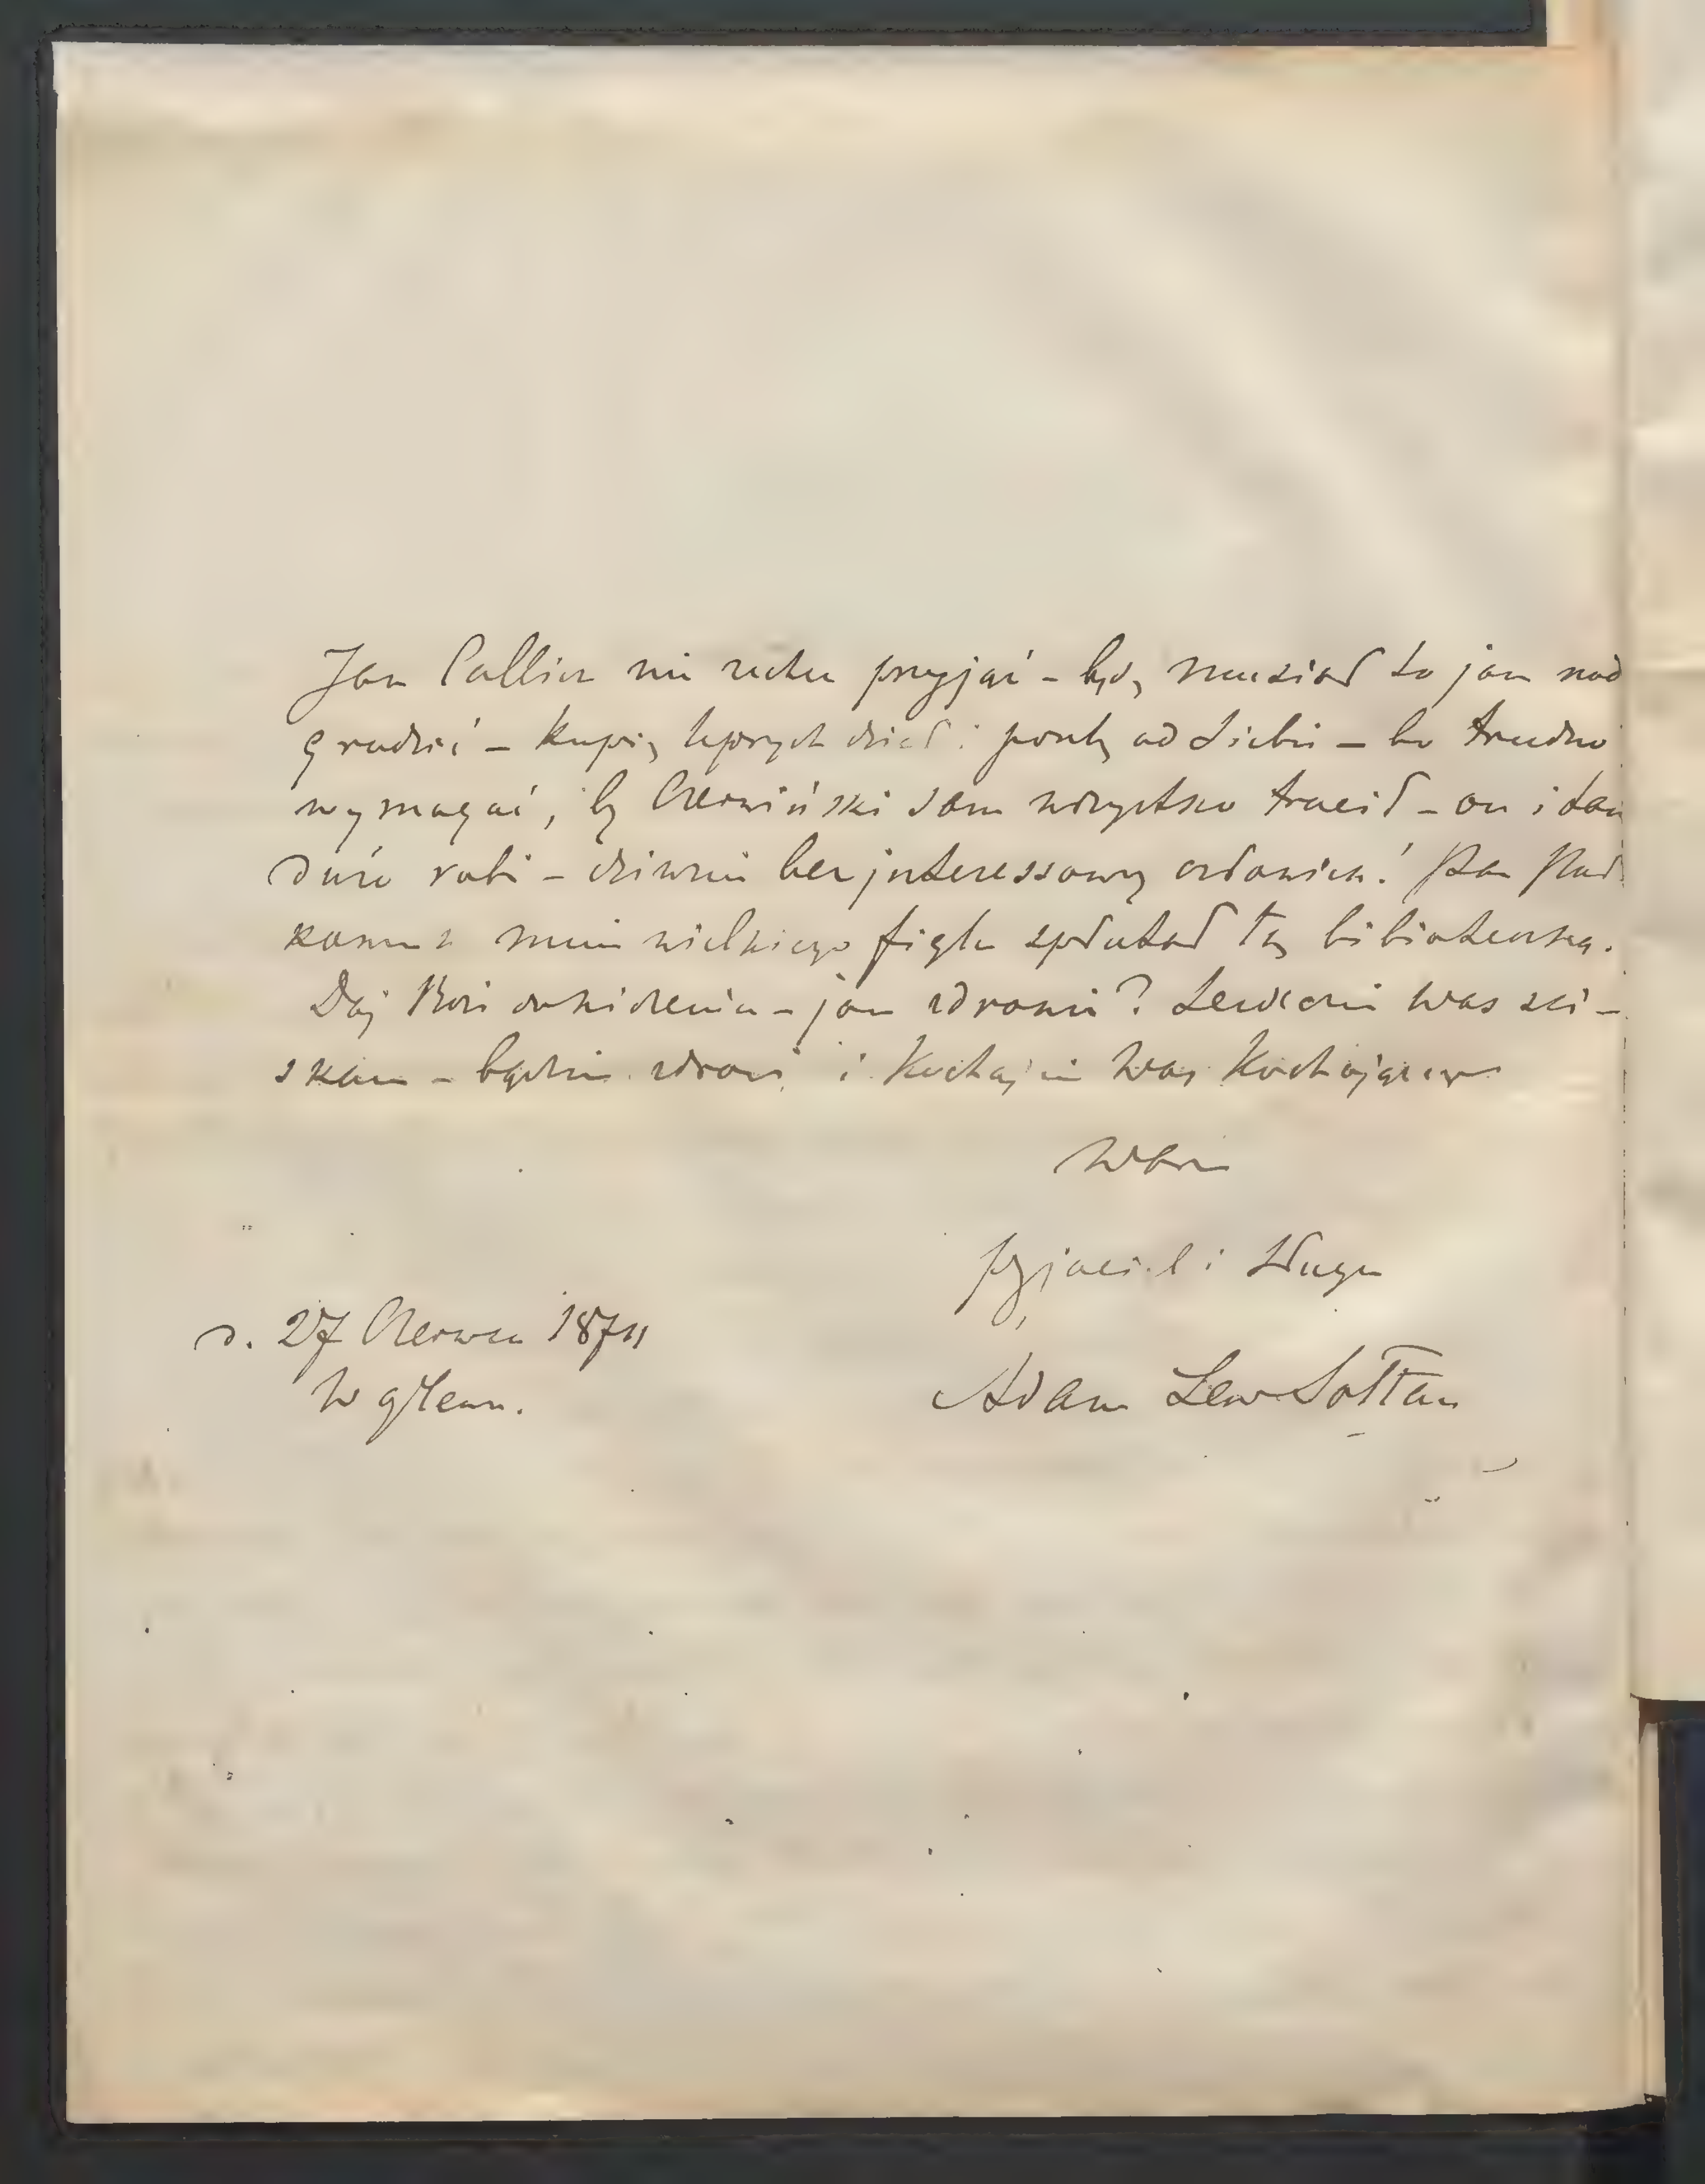 Jan Callier nie zechce przyjąć – będę musiał to jan nad
grodzić – kupię lepszych dzieł i poszlę od siebie – bo trudno
wymagać, by Czerwiński sam wszystko tracił – on i tak
dużo robi – dziwnie bezinteressowny człowiek! Pan
mnie wielkiego figla spłatał tą biblioteczką.
Daj Boże do widzenia – jak zdrowie? Serdecznie Was ści–
skam – bądźcie zdrowi i Kochajcie Was Kochającego
Wasz
przyjaciel i sługa
d. 27 Czerwca 1874
W głenn.
Adam Lew Sołtan